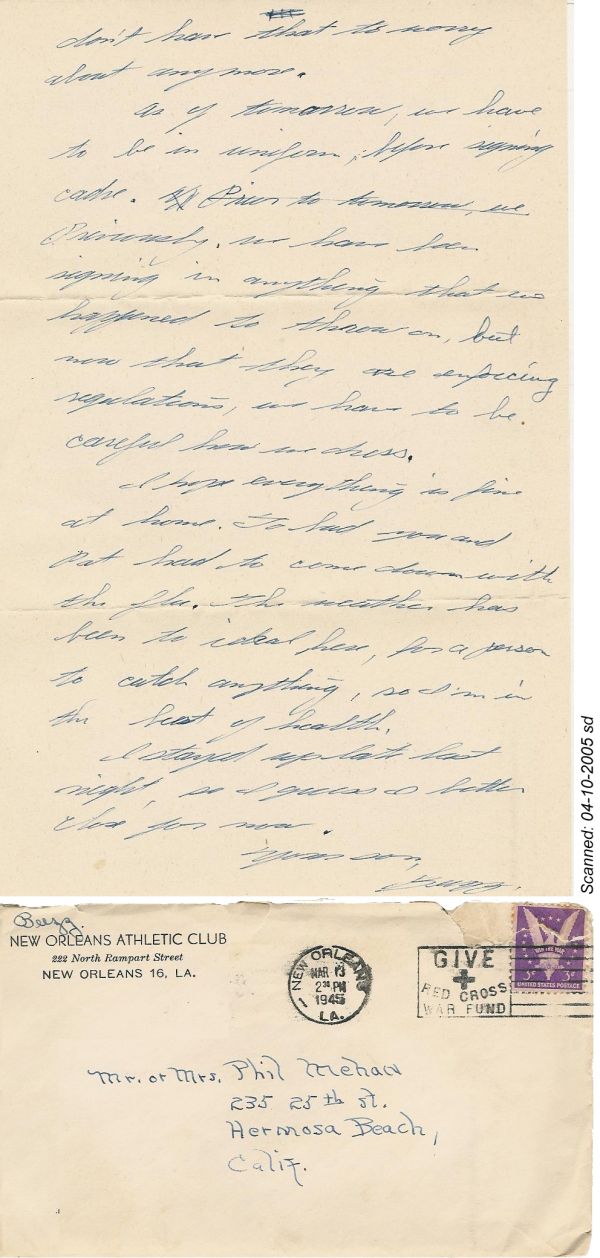 don't have that to worry
about anymore.
As of tomorrow, we have
to be in uniform, before signing
cadre. Prior to tomorrow, we
Previously, we have been
signing in anything that we
happened to throw on, but
now that they are enforcing
regulations, we have to be
careful how we dress.
I hope everything is fine
at home. To bad you and
Pat had to come down with
the flu. The weather has
been to ideal here, for a person
to catch anything, so I'm in
the best of health.
I stayed up late last
night, so I guess I better
close for now.
Your son,
Scanned: 04-10-2005 sd
Beezy
NEW ORLEANS ATHLETIC CLUB
222 North Rampart Street
NEW ORLEANS 16, LA.
NEW ORLEANS
1
MAR 13
2 30 PM
1945
LA.
GIVE
RED CROSS
WAR FUND
WIN THE WAR
3¢ 3¢
UNITED STATES POSTAGE
Mr. or Mrs. Phil Mehan
235 25th st.
Hermosa Beach,
Calif.